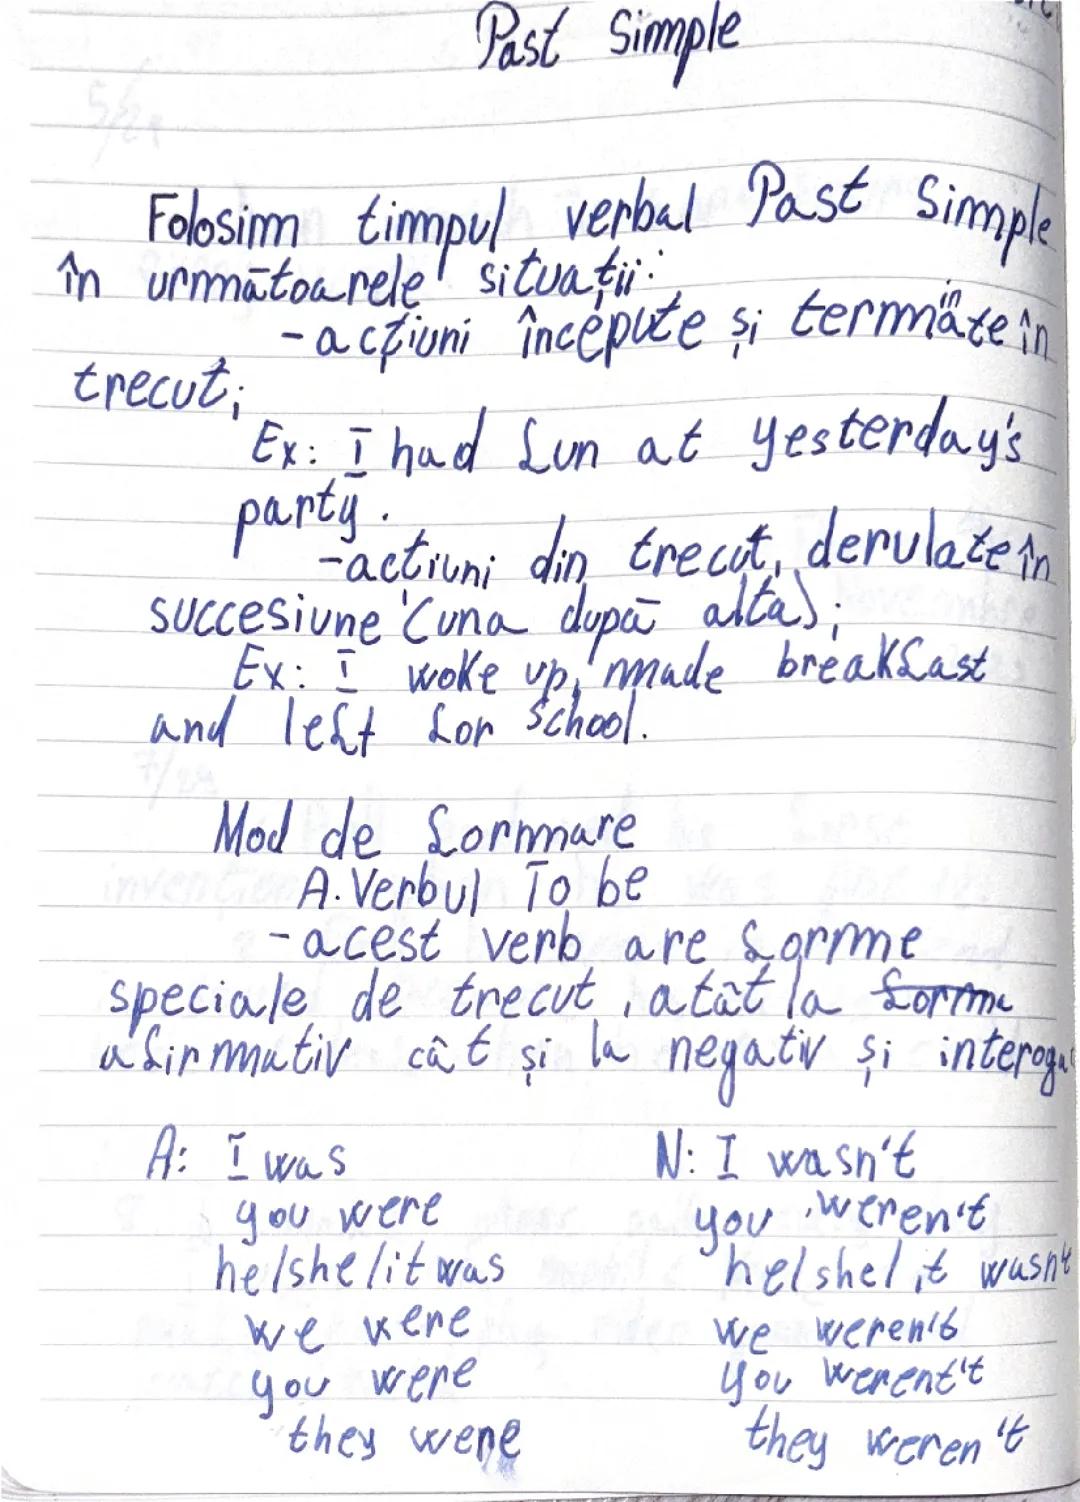 Past Simple
Folosim timpul verbal Past Simple
în următoarele situații:
- acțiuni începute și terminate în
trecut;
Ex: I had fun at yesterday's
party.
-actiuni din trecut, derulate în
succesiune (una după alta);
Ex: I woke up, made breakfast
and left for school.
Mod de formare
A. Verbul To be
- acest verb are forme
speciale de trecut, atât la forma
afirmativ cât și la negativ și interoga
A: I was N: I wasn't
you were you weren't
he/she/it was he/she/it wasn't
we were we weren't
you were you werent't
they were they weren't